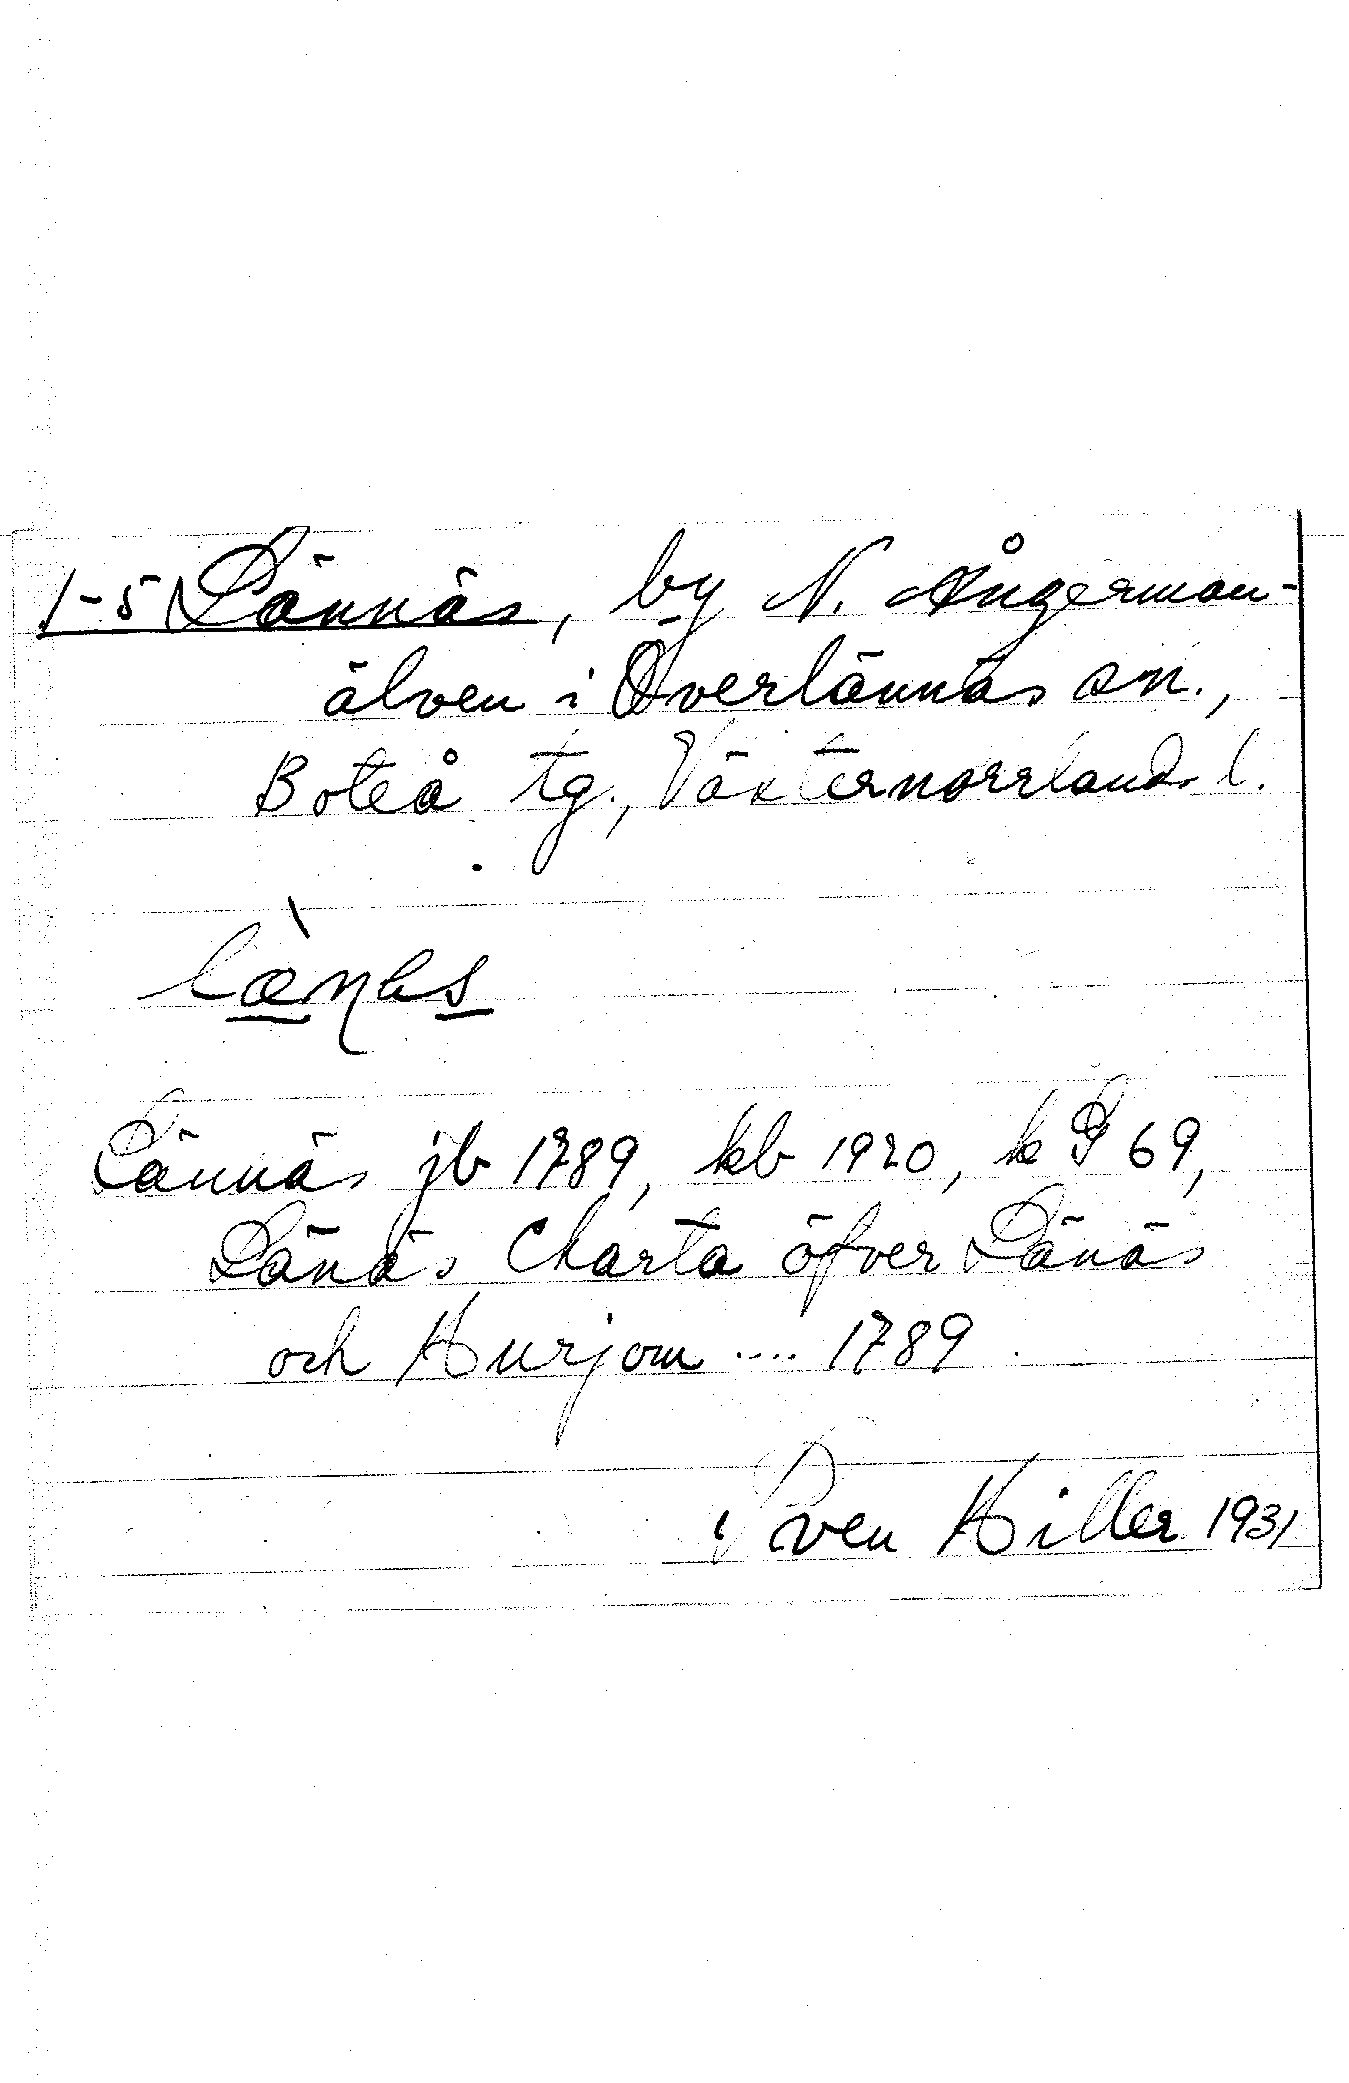 1-5 Lännäs, by N. Ångerman-
älven i Överlännäs sn.,
Boteå tg., Västernorrlands l.
Lännäs jb 1789, kb 1920, k G 69,
Länäs Charta öfver Länäs
och Hurjom .... 1789
Sven Hiller 1931